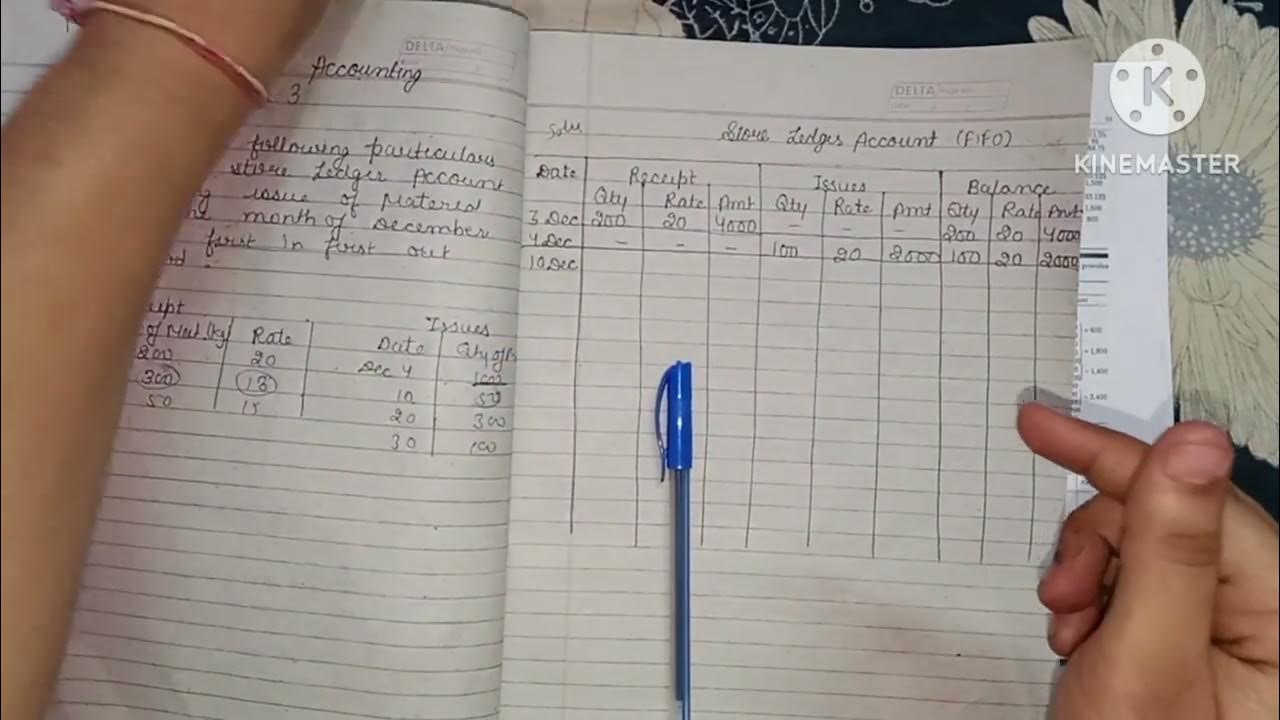 DELTA
Accounting
3
following particulars
store Ledger Account
issue of Matered
month of December
first in first out
Issues
Rate Date Qty of
200 20 Dec 4 100
300 13 10 50
50 15 20 300
30 100
DELTA
Store Ledger Account (FIFO)
Date Receipt Issues Balance
Qty Rate Amt Qty Rate Amt Qty Rate Amt
3 Dec 200 20 4000 - - - 200 20 4000
4 Dec - - - 100 20 2000 100 20 2000
10 Dec
K
KINEMASTER